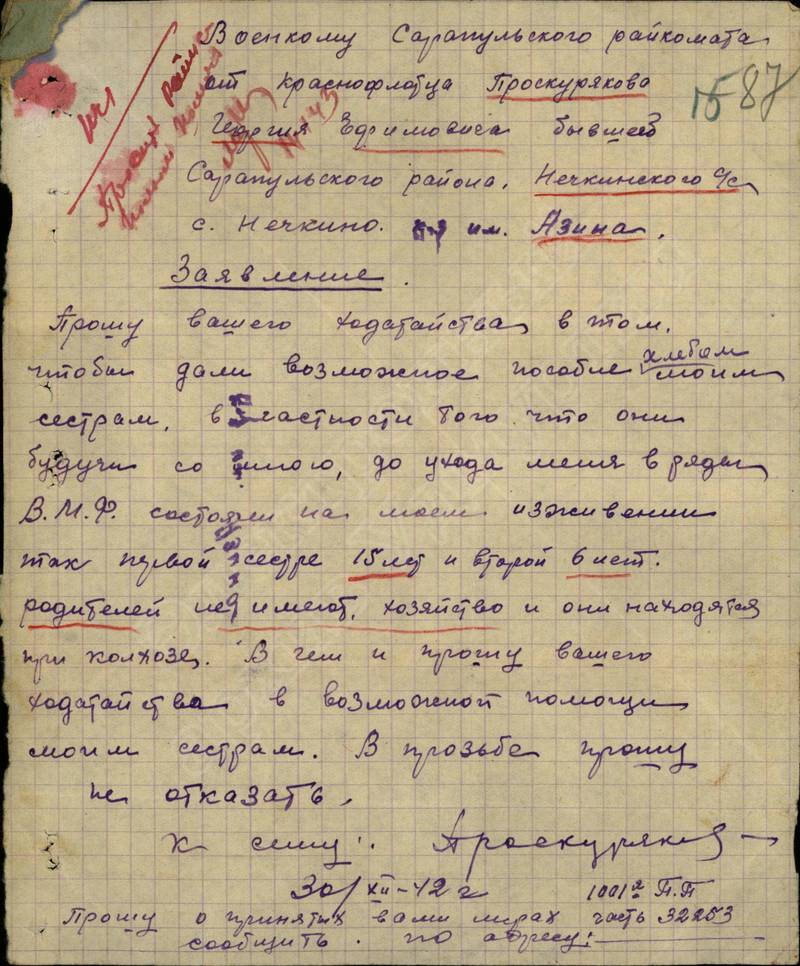 Военкому Сарапульского райкомата
от краснофлотца Проскурякова
Георгия Ефимовича бывшей
1587
Сарапульского района, Нечкинского с/с,
с. Нечкино. им. Азина,
Заявление.
Прошу вашего ходатайства, в том,
чтобы дали возможное пособие хлебом моим
сестрам, в частности того что они
будучи со мною, до ухода меня в ряды
В.М.Ф. состояли на моем изживении
так первой сестре 15 лет и второй 6 лет.
родителей не имеют, хозяйство и они находятся
при колхозе. В чем и прошу вашего
ходатайства в возможной помощи
моим сестрам. В прозьбе прошу
не отказать.
К сему: Проскуряков
30/XII-42 г 1001й П.П
Прошу о принятых вами мерах часть 32253
сообщить по адресу: